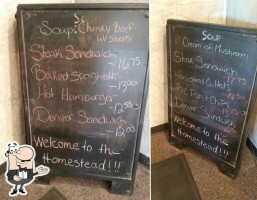 Soup: Chunky Beef
W/ Steaks
Steak Sandwich
- 16.75
Baked Spaghetti
- 13.00
Hot Hamburger
- 12.25
Denver Sandwich
- 12.00
Welcome to the
Homestead!!!
Soup
Cream of Mushroom
Steak Sandwich
Denver Sandwich
Welcome to the
Homestead!!